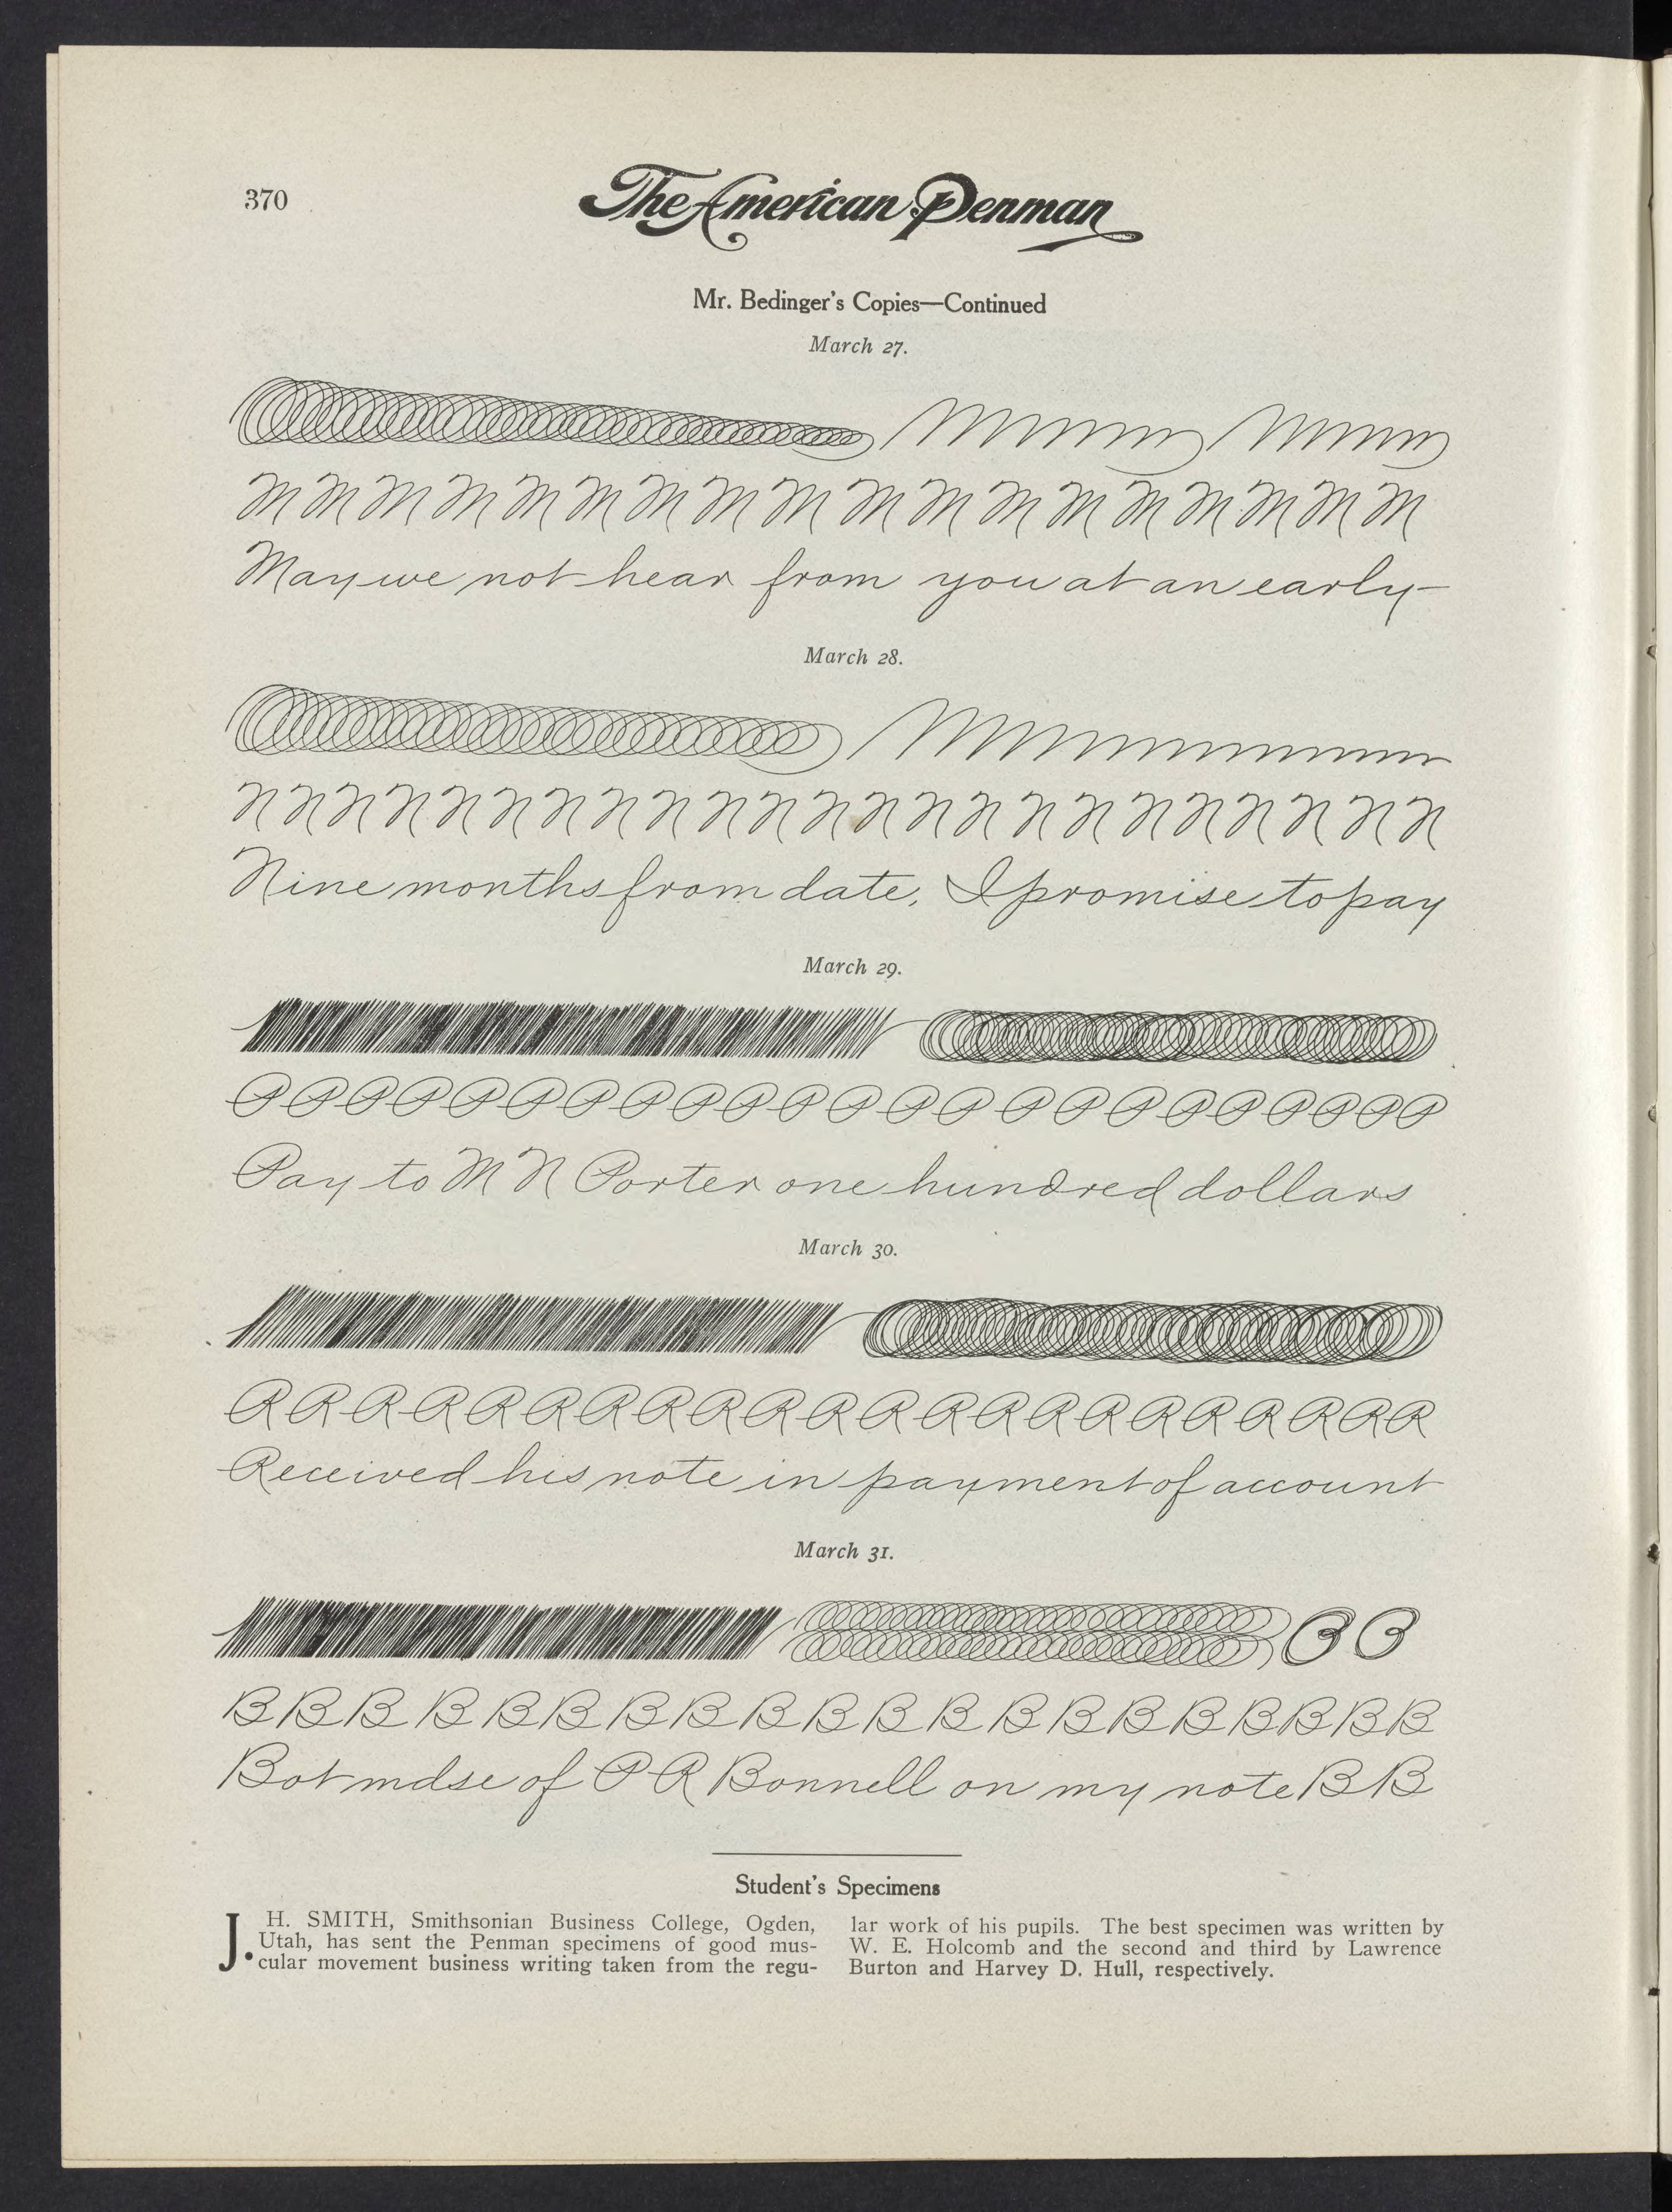 370
The American Penman
Mr. Bedinger's Copies—Continued
March 27.
M M M M M M M M M M M M M M M M M M
May we not hear from you at an early
March 28.
N N N N N N N N N N N N N N N N N N N N N N N
Nine months from date, I promise to pay
March 29.
P P P P P P P P P P P P P P P P P P P P P P
Pay to M N Porter one hundred dollars
March 30.
R R R R R R R R R R R R R R R R R R R R R
Received his note in payment of account
March 31.
B B
B B B B B B B B B B B B B B B B B B
Bot mdse of P R Bonnell on my note B B
Student's Specimens
J. H. SMITH, Smithsonian Business College, Ogden,
Utah, has sent the Penman specimens of good mus-
cular movement business writing taken from the regu-
lar work of his pupils. The best specimen was written by
W. E. Holcomb and the second and third by Lawrence
Burton and Harvey D. Hull, respectively.